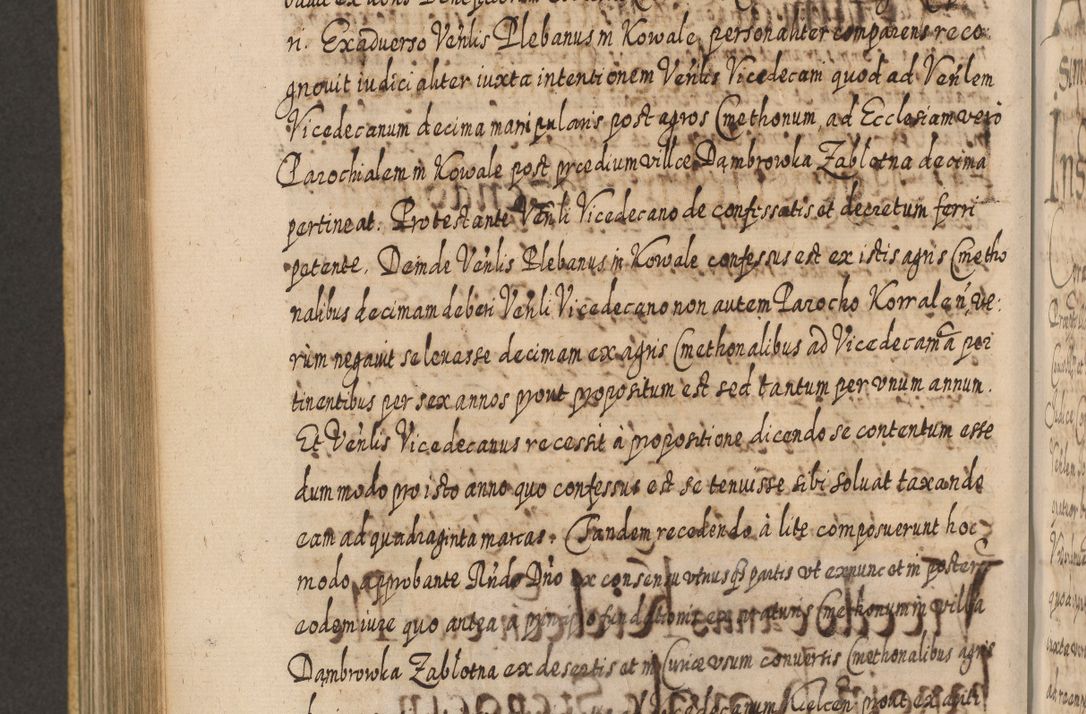 ri. Exadverso Venlis Plebanus in Kowale personaliter comparens reco
gnouit iudicialiter iuxta intentionem Venlis Vicedecani quod ad Venlem
Vicedecanum decima manipularis post agros Cmethonum, ad Ecclesiam vero
Parochialem in Kowale post prædium villæ Dąmbrowka Zabłotna decima
pertineat. Protestante Venli Vicedecano de confessatis et decretum ferri
petente. Deinde Venlis Plebanus in Kowale confessus est ex istis agris Cmetho
nalibus decimam deberi Venli Vicedecano non autem Parocho Kowaleń, ve:
rum negauit se leuasse decimam ex agris Cmethonalibus ad Vicedecanã per
tinentibus per sex annos prout propositum est sed tantum per vnum annum.
Et Venlis Vicedecanus recessit à propositione dicendo se contentum esse
dummodo pro isto anno quo confessus est se tenuisse sibi soluat taxando
eam ad quadraginta marcas. Tandem recedendo à lite composuerunt hoc
modo approbante Rndo Dño ex consensu vtriusq partis vt exnunc et in poster
eodem iure quo antea a principio fundationis ex praturis Cmethonum in villa
Dąmbrowka Zabłotna ex desertis et in Curiæ vsum conversis Cmethonalibus agris
Vicedecanum Kielcen prout ex anti